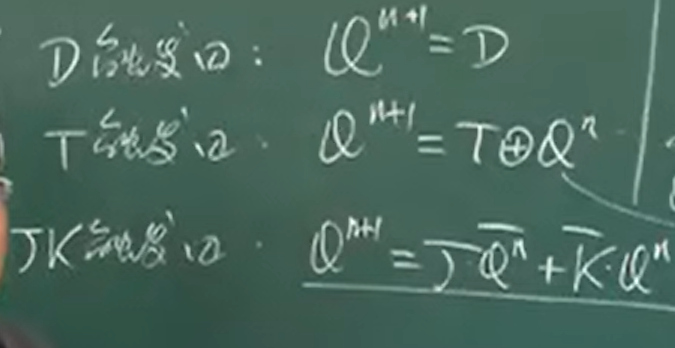 D触发器: Qⁿ⁺¹ = D
T触发器: Qⁿ⁺¹ = T⊕Qⁿ
JK触发器: Qⁿ⁺¹ = J·Q̅ⁿ + K̅·Qⁿ